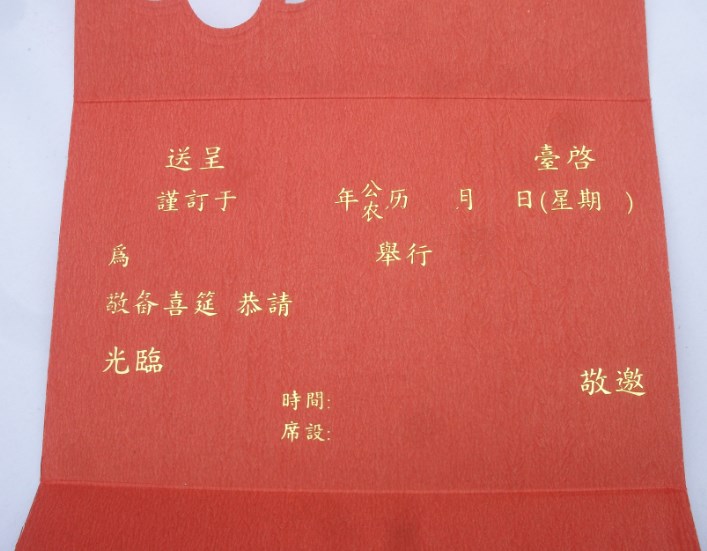 送呈 臺啓
謹訂于 年公农历 月 日(星期 )
爲 舉行
敬备喜筵 恭請
光臨
敬邀
時間:
席設: